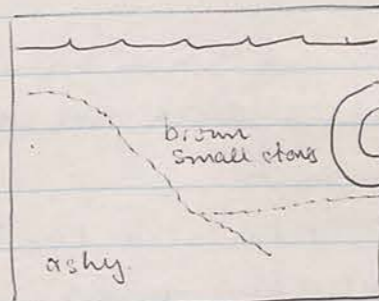 brown
small stones
ashy.